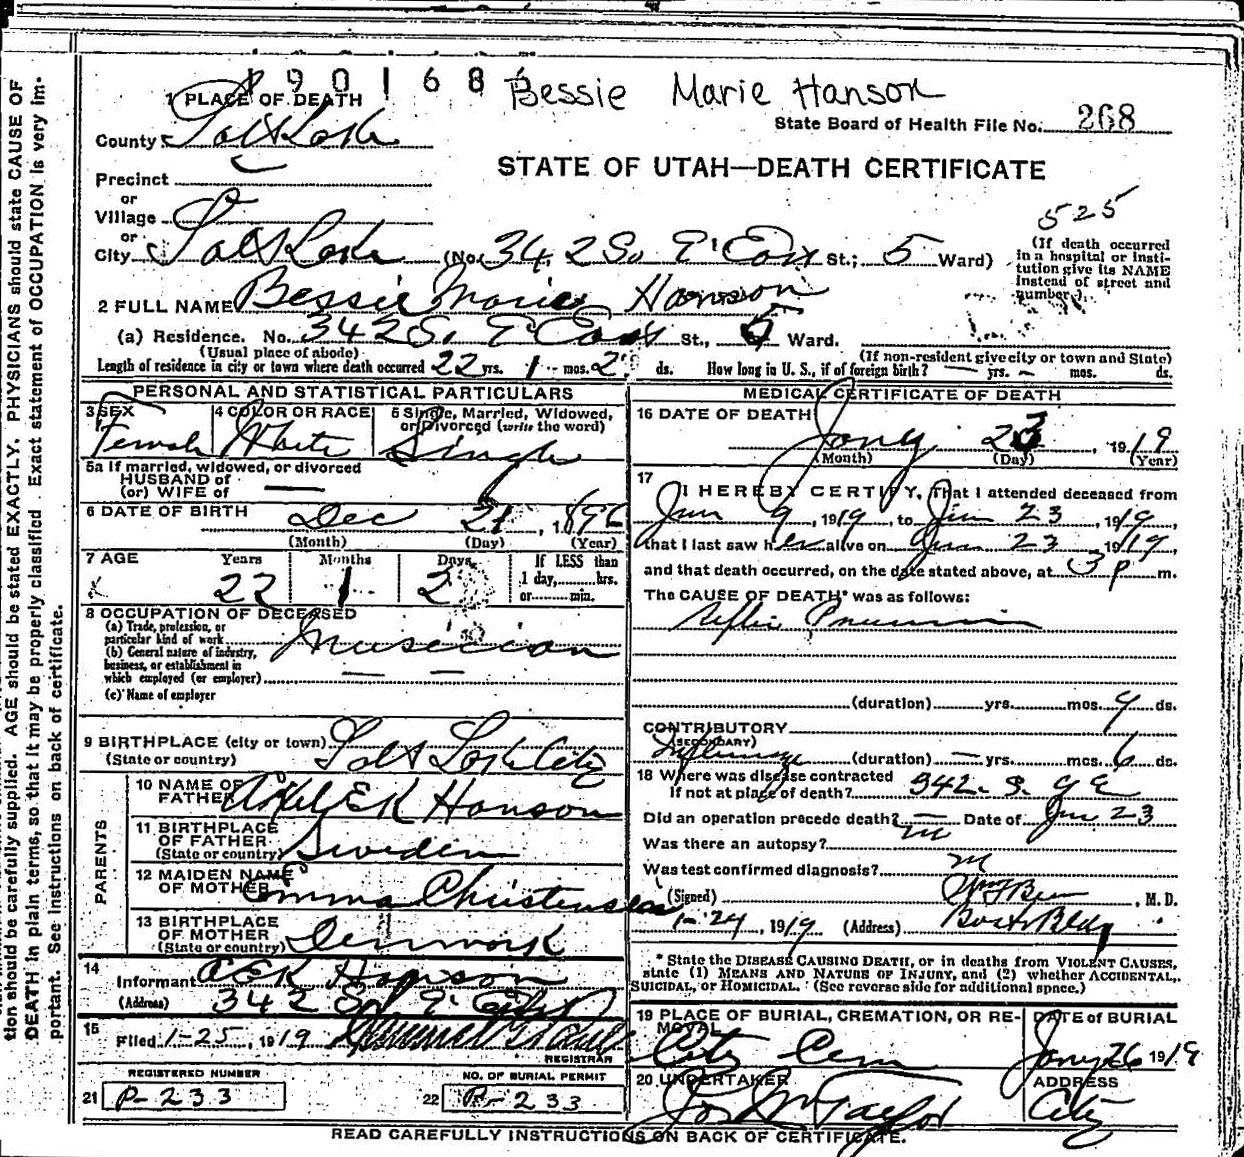 1 9 0 1 6 8 Bessie Marie Hanson
1 PLACE OF DEATH
State Board of Health File No. 268
County Salt Lake
STATE OF UTAH—DEATH CERTIFICATE
Precinct
or
Village
525
or
City Salt Lake (No. 342 So E' East St.; 5 Ward)
(If death occurred in a hospital or institution give its NAME instead of street and number.)
2 FULL NAME Bessie Marie Hanson
(a) Residence. No. 342 S. E' East St., 5 Ward.
(Usual place of abode) (If non-resident give city or town and State)
Length of residence in city or town where death occurred 22 yrs. 1 mos. 2 ds. How long in U. S., if of foreign birth? — yrs. – mos. ds.
PERSONAL AND STATISTICAL PARTICULARS
3 SEX Female
4 COLOR OR RACE White
5 Single, Married, Widowed, or Divorced (write the word) Single
5a If married, widowed, or divorced
HUSBAND of
(or) WIFE of —
6 DATE OF BIRTH Dec 21, 1896
(Month) (Day) (Year)
7 AGE Years Months Days If LESS than
22 1 2 1 day, hrs.
or min.
8 OCCUPATION OF DECEASED
(a) Trade, profession, or
particular kind of work Musician
(b) General nature of industry,
business, or establishment in
which employed (or employer) — —
(c) Name of employer
9 BIRTHPLACE (city or town) Salt Lake City
(State or country)
PARENTS
10 NAME OF FATHER Axel E K Hanson
11 BIRTHPLACE OF FATHER
(State or country) Sweden
12 MAIDEN NAME OF MOTHER Emma Christensen
13 BIRTHPLACE OF MOTHER
(State or country) Denmark
14 Informant A E K Hanson
(Address) 342 So E' East
15 Filed 1-25, 1919
REGISTRAR
REGISTERED NUMBER
21 P-233
NO. OF BURIAL PERMIT
22 P-233
MEDICAL CERTIFICATE OF DEATH
16 DATE OF DEATH
Jany 23, 1919
(Month) (Day) (Year)
17 I HEREBY CERTIFY, That I attended deceased from
Jan 9, 1919, to Jan 23, 1919,
that I last saw her alive on Jan 23 1919,
and that death occurred, on the date stated above, at 3 P m.
The CAUSE OF DEATH* was as follows:
Pneumonia
(duration) yrs. mos. 4 ds.
CONTRIBUTORY
(SECONDARY) Influenza (duration) — yrs. mos. 6 ds.
18 Where was disease contracted
If not at place of death? 342. S. 9 E
Did an operation precede death? — Date of Jan 23
Was there an autopsy? no
Was test confirmed diagnosis? no
(Signed) , M. D.
1-24, 1919 (Address) Boston Bldg
* State the DISEASE CAUSING DEATH, or in deaths from VIOLENT CAUSES,
state (1) MEANS AND NATURE OF INJURY, and (2) whether ACCIDENTAL,
SUICIDAL, or HOMICIDAL. (See reverse side for additional space.)
19 PLACE OF BURIAL, CREMATION, OR REMOVAL City Cem
DATE of BURIAL Jany 26 1919
20 UNDERTAKER Jos Wm Taylor
ADDRESS City
READ CAREFULLY INSTRUCTIONS ON BACK OF CERTIFICATE.
tion should be carefully supplied. AGE should be stated EXACTLY. PHYSICIANS should state CAUSE OF
DEATH in plain terms, so that it may be properly classified. Exact statement of OCCUPATION is very im-
portant. See instructions on back of certificate.